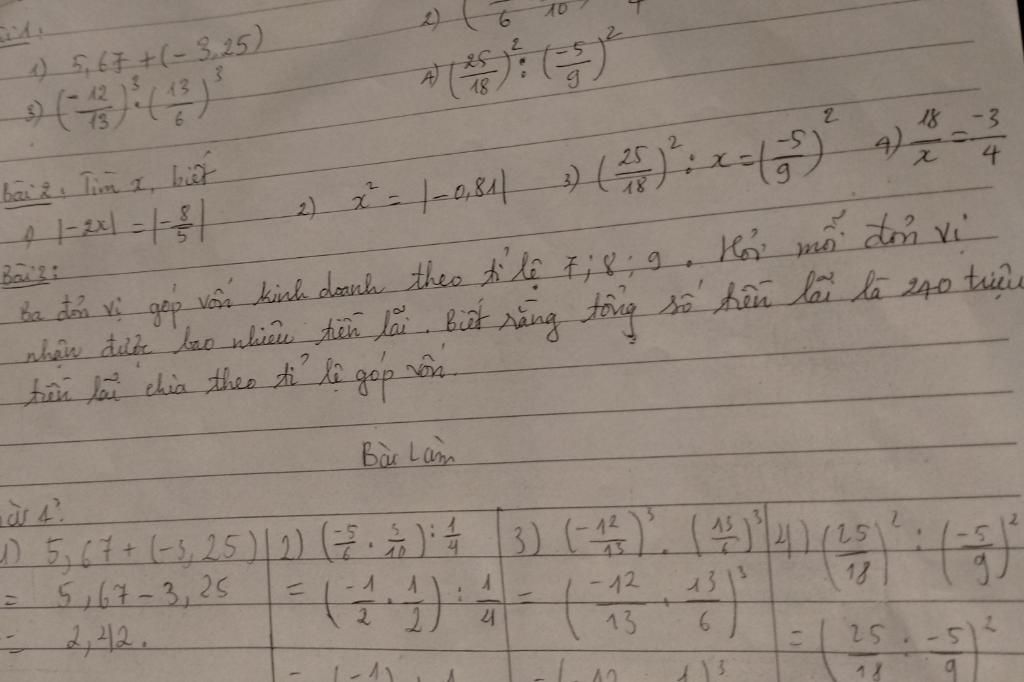 1) 5,67 + (-3,25)
2) ( 6 10
3) (-12/13)³ . (13/6)³
4) (25/18)² : (-5/9)²
Bài 2: Tìm x, biết
1) |-2x| = |-8/5|
2) x² = |-0,81|
3) (25/18)² : x = (-5/9)²
4) 18/x = -3/4
Bài 3:
Ba đơn vị góp vốn kinh doanh theo tỉ lệ 7; 8; 9. Hỏi mỗi đơn vị
nhận được bao nhiêu tiền lãi. Biết rằng tổng số tiền lãi là 240 triệu
tiền lãi chia theo tỉ lệ góp vốn.
Bài Làm
1) 5,67 + (-3,25)
= 5,67 - 3,25
= 2,42.
2) (-5/6 . 3/10) : 1/4
= (-1/2 . 1/2) : 1/4
3) (-12/13)³ . (13/6)³
= (-12/13 . 13/6)³
4) (25/18)² : (-5/9)²
= (25/18 : -5/9)²